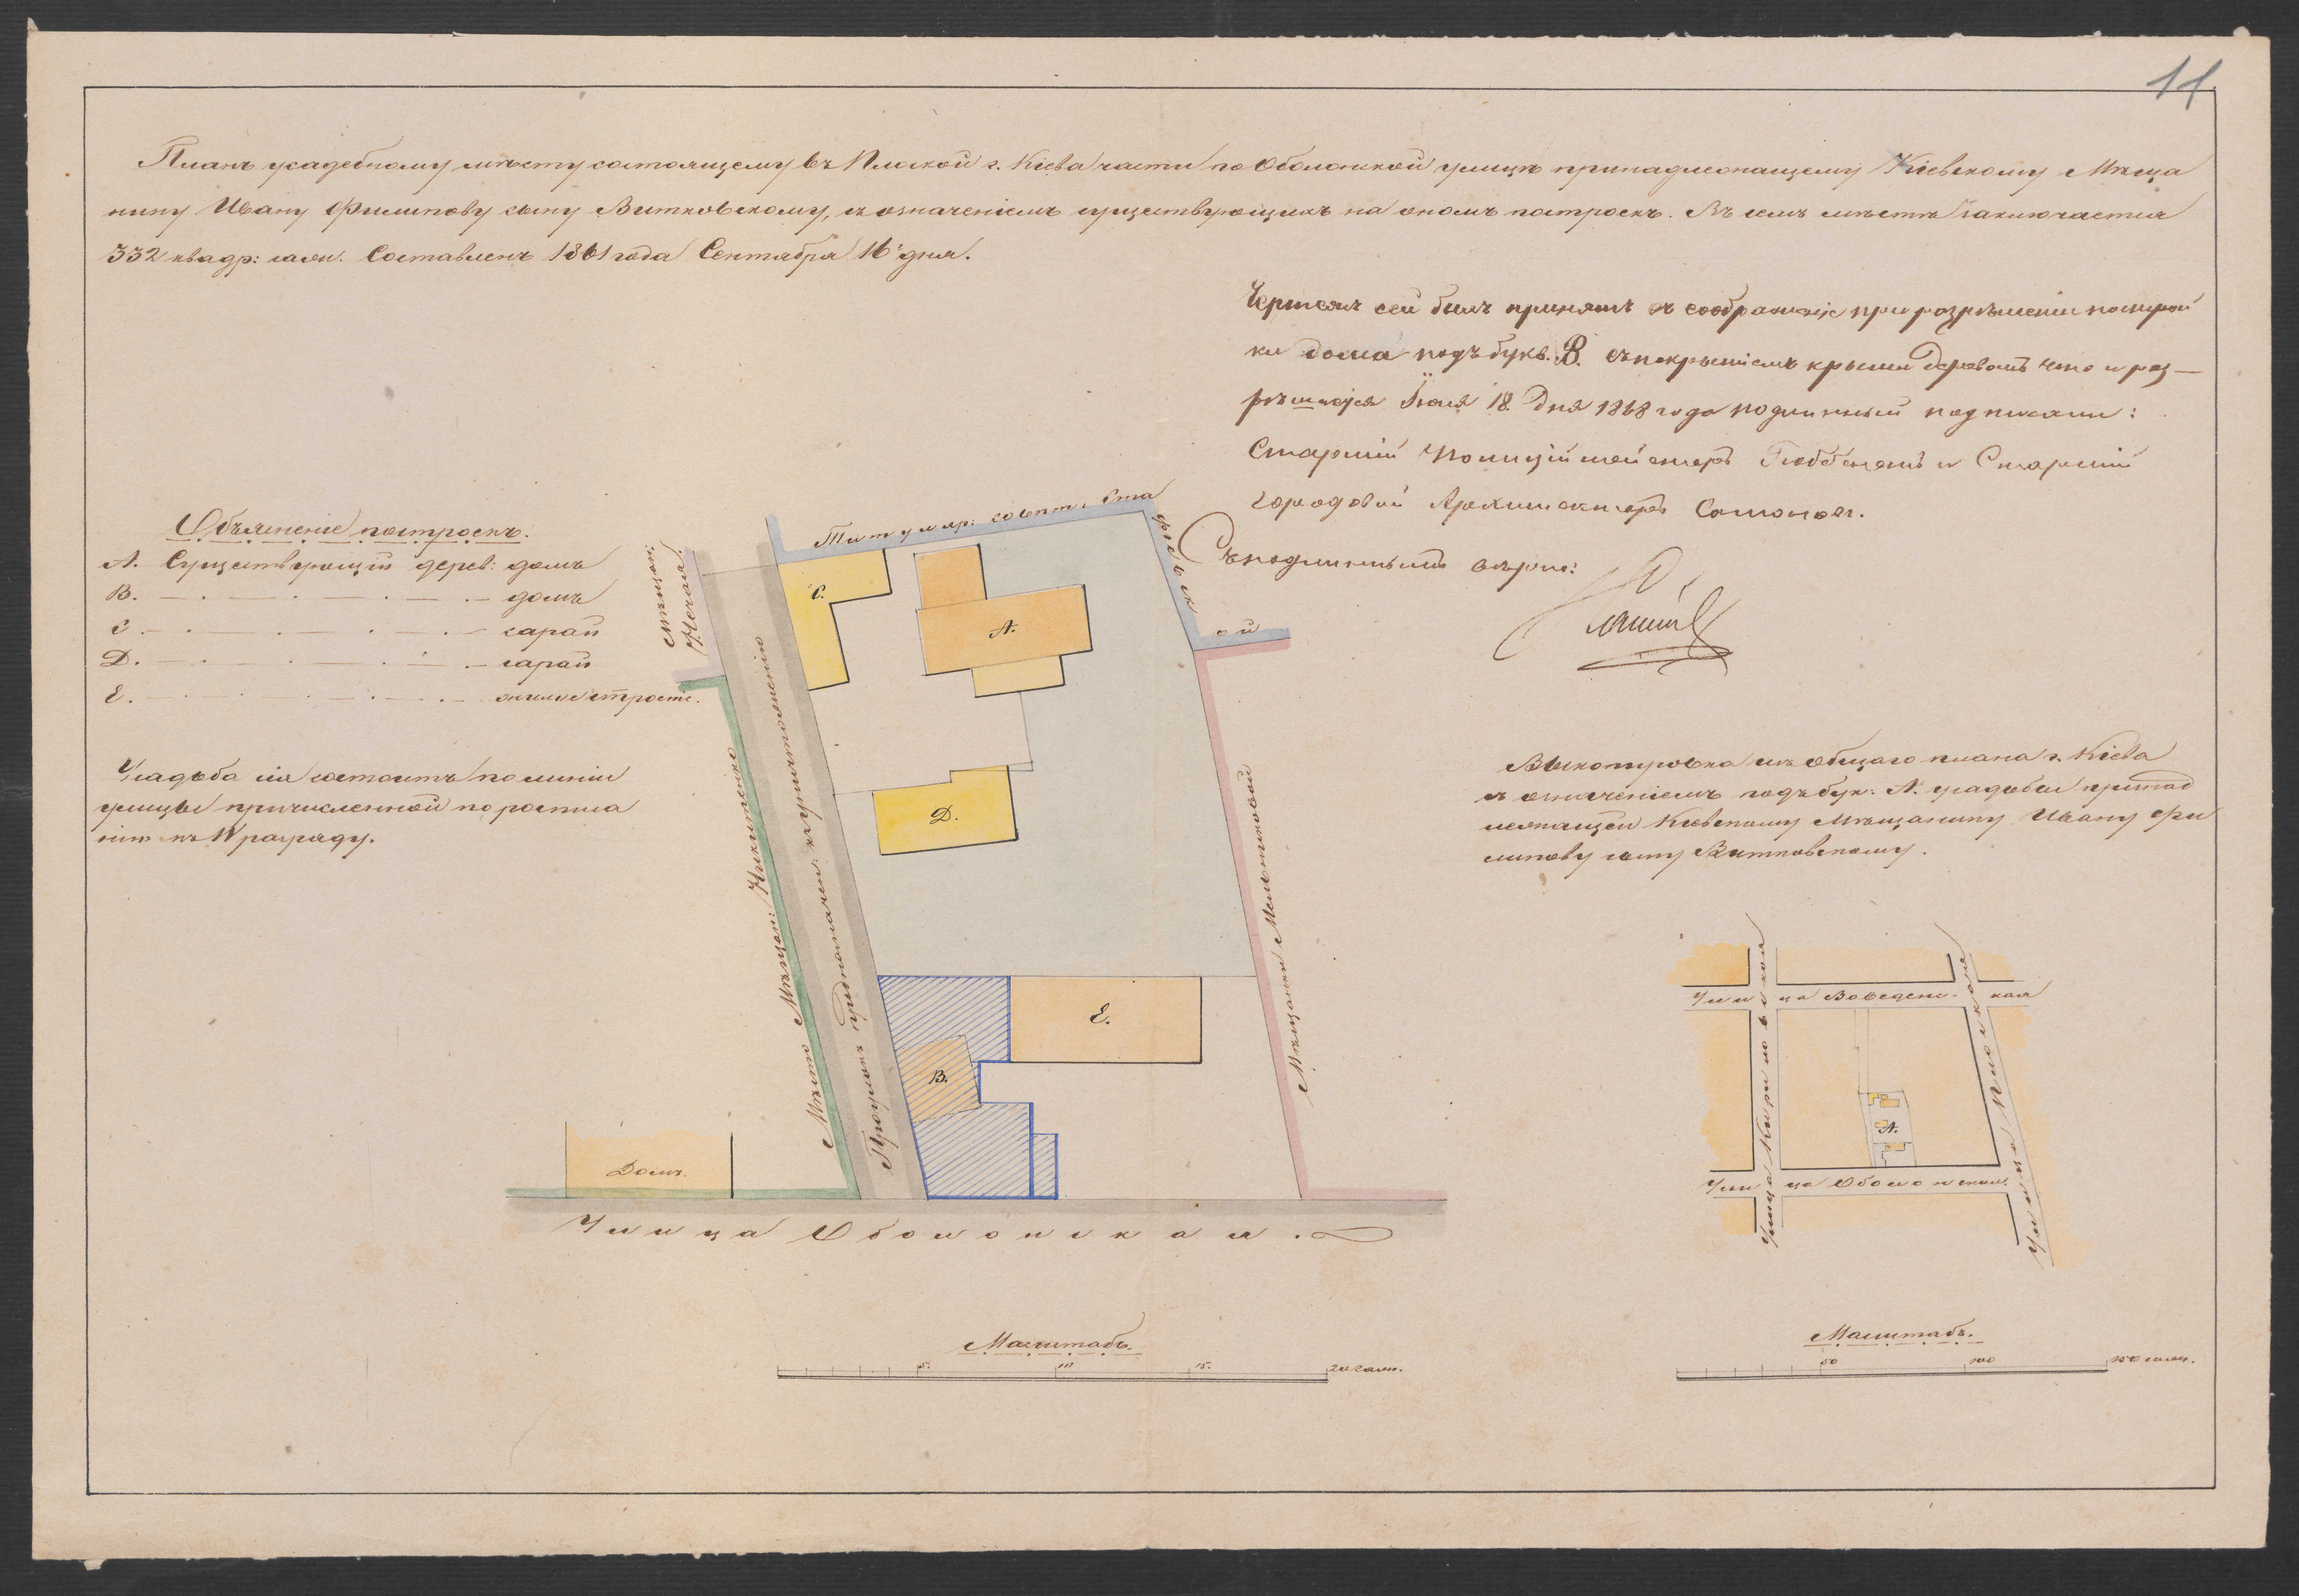 11
Планъ усадебному мѣсту состоящему въ Плоской г. Кіева части по Оболонской улицѣ принадлежащему Кіевскому Мѣща
нину Ивану Филипову сыну Витковскому, съ означеніемъ существующихъ на ономъ построекъ. Въ семъ мѣстѣ заключается
332 квадр: саж. Составленъ 1861 года Сентября 16 дня.
Чертежъ сей былъ принятъ въ соображеніе при разрѣшеніи построй
ки дома подъ букв. В. съ покрытіемъ крыши деревомъ что и раз—
рѣшается Іюля 18 дня 1868 года подлинный подписали:
Старшій Полиціймейстеръ и Старшій
городовой Архитекторъ
Съ подлиннымъ вѣрно:
Объясненіе построекъ.
А. Существующій дерев: домъ
В. домъ
С. сарай
D. сарай
Е. жилое строеніе.
Усадьба сія состоитъ по линіи
улицы причисленной по росписа
нію къ IV разряду.
Титуляр: совѣт: Ста
фіевск
ой
Мѣщан:
Нечая.
С.
А.
D.
Е.
В.
Мѣсто Мѣщан: Никитенко
Проулокъ предназначен: къ уничтоженію
Мѣщанки Мельниковой
Домъ.
Улица Оболонская.
Масштабъ.
5. 10 15. 20 саж.
Выкопировка изъ общаго плана г. Кіева
съ означеніемъ подъ бук: А. усадьбы принад
лежащей Кіевскому Мѣщанину Ивану Фи
липову сыну Витковскому.
Улица Введенская
Улица Кириловская
Улица Плоская
А.
Улица Оболонская.
Масштабъ.
50 100 150 саж.